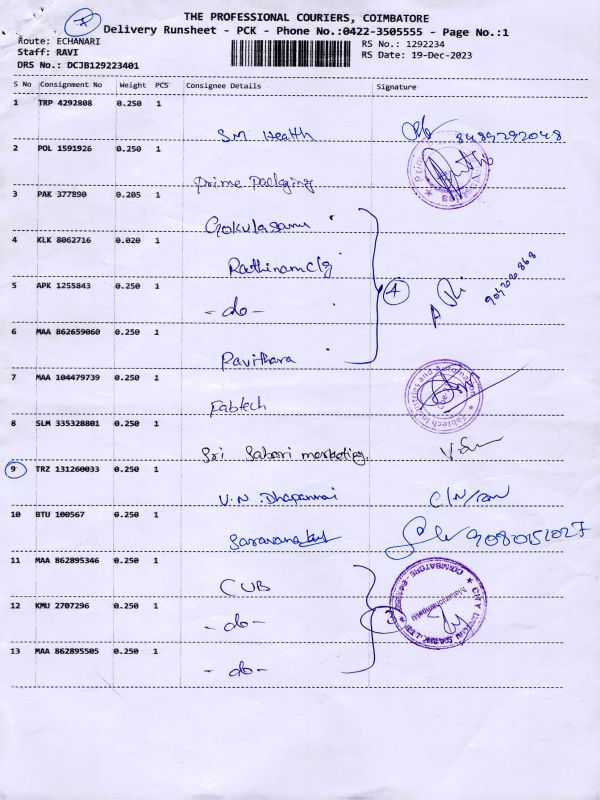 7
THE PROFESSIONAL COURIERS, COIMBATORE
Delivery Runsheet - PCK - Phone No.:0422-3505555 - Page No.:1
Route: ECHANARI
RS No.: 1292234
Staff: RAVI
RS Date: 19-Dec-2023
DRS No.: DCJB129223401
S No Consignment No Weight PCS Consignee Details Signature
1 TRP 4292808 0.250 1
SM Health 8489292048
2 POL 1591926 0.250 1
Prime Packaging
3 PAK 377890 0.205 1
4 KLK 8062716 0.020 1
Rathinam clg
4
5 APK 1255843 0.250 1
- do -
6 MAA 862659060 0.250 1
Pavithara
7 MAA 104479739 0.250 1
Fabtech
8 SLM 335328801 0.250 1
Sri Sabari marketing.
9 TRZ 131260033 0.250 1
V.N.
10 BTU 100567 0.250 1
9080151027
11 MAA 862895346 0.250 1
CUB
12 KMU 2707296 0.250 1
- do -
3
13 MAA 862895505 0.250 1
- do -